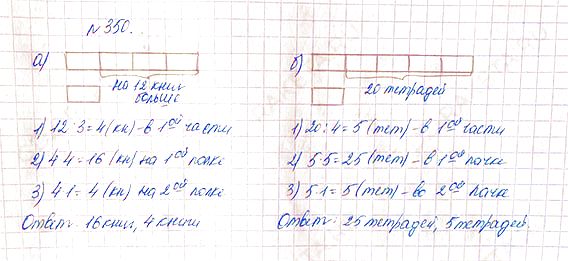 №350.
а)
на 12 книг
больше
1) 12 : 3 = 4 (кн) - в 1ой части
2) 4·4 = 16 (кн) на 1ой полке
3) 4·1 = 4 (кн) на 2ой полке
Ответ: 16 книг, 4 книги
б)
20 тетрадей
1) 20 : 4 = 5 (тет) - в 1ой части
2) 5·5 = 25 (тет) - в 1ой пачке
3) 5·1 = 5 (тет) - во 2ой пачке
Ответ: 25 тетрадей, 5 тетрадей.